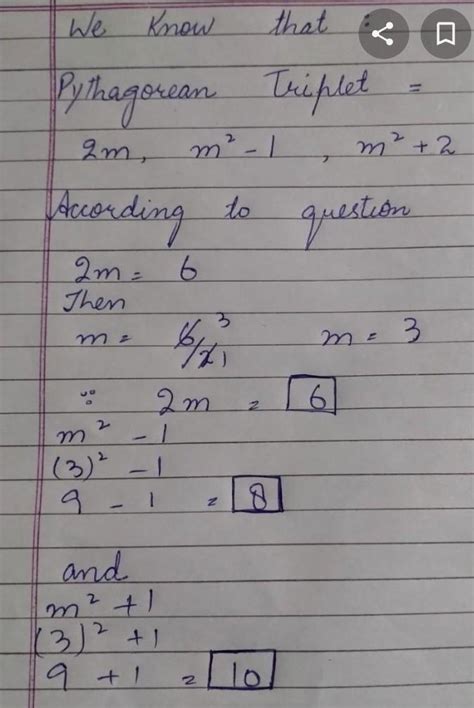 We Know that :
Pythagorean Triplet =
2m, m² - 1 , m² + 2
According to question
2m = 6
Then
m = 6/2 3 1 m = 3
∵ 2m = 6
m² - 1
(3)² - 1
9 - 1 = 8
and
m² + 1
(3)² + 1
9 + 1 = 10